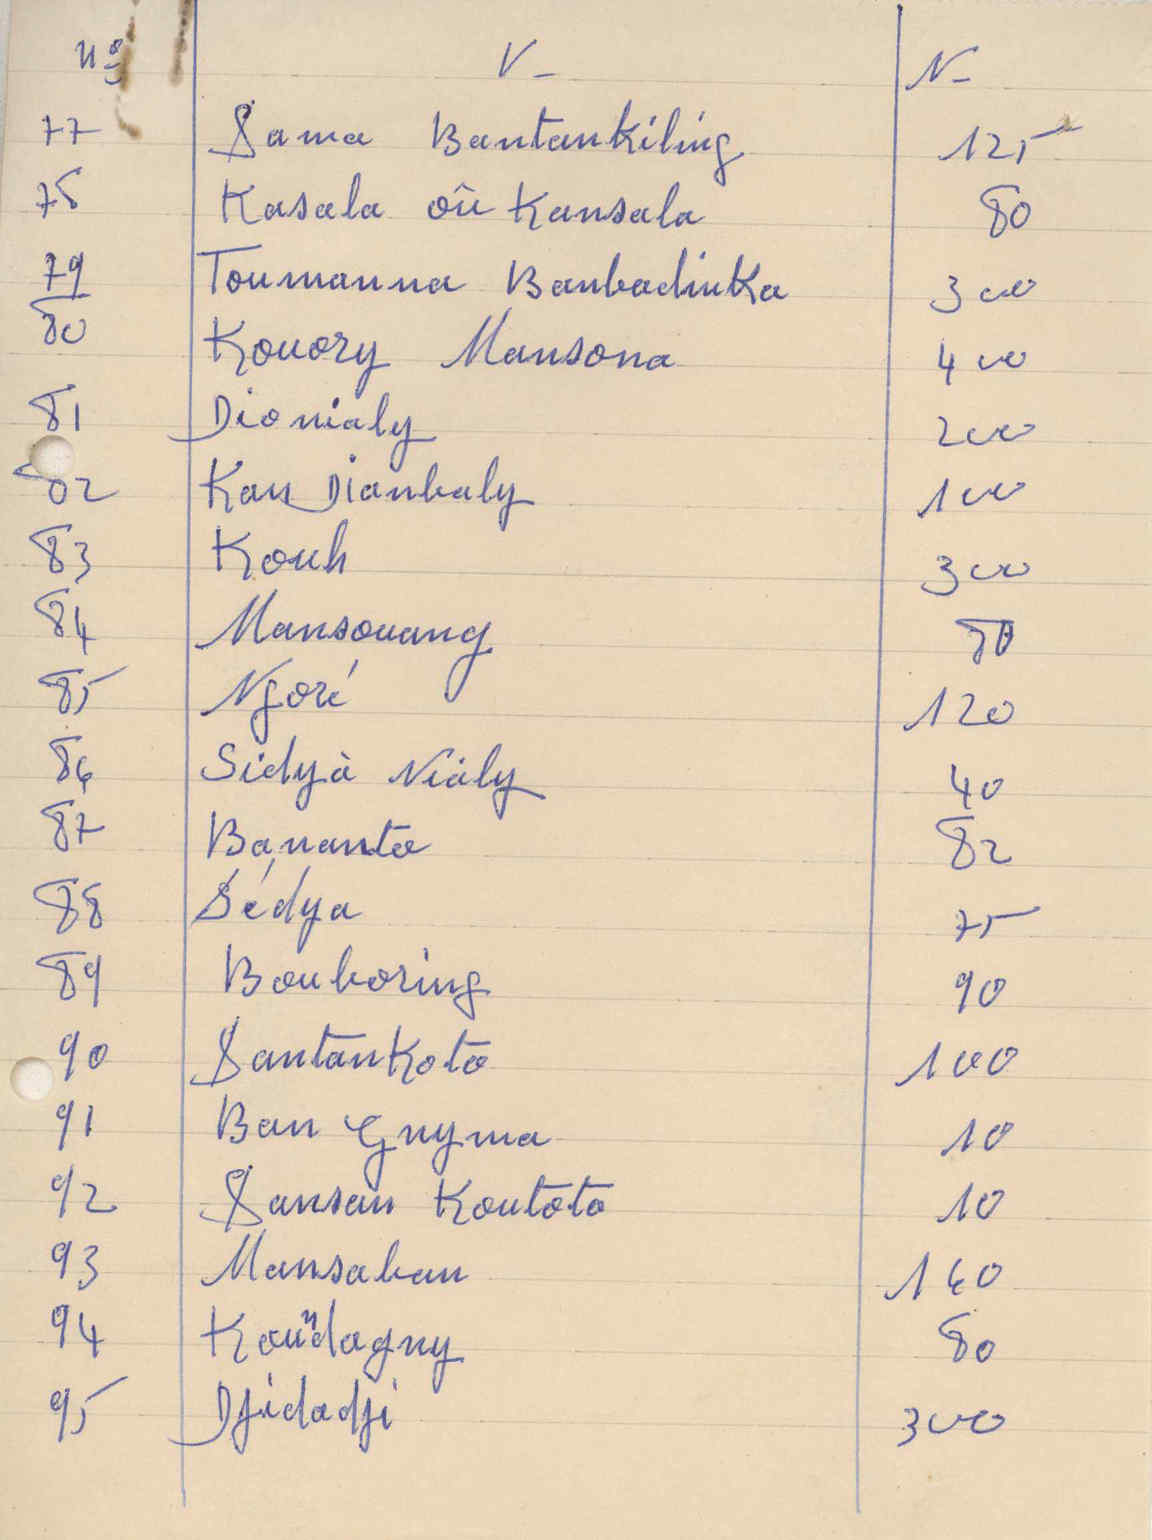 Nº V- N-
77 Sama Bantankiling 125
78 Kasala oû Kansala 80
79 Toumanna Banbadinka 300
80 Kouory Mansona 400
81 Dionialy 200
82 Kan Dianbaly 100
83 Kouh 300
84 Mansouang 80
85 Ngoré 120
86 Sidyà Niàly 40
87 Bananto 82
88 Sédya 75
89 Bouboring 90
90 Santankoto 100
91 Ban Gnyma 10
92 Sansan Koutoto 10
93 Mansaban 160
94 Koundagny 80
95 Djidadji 300